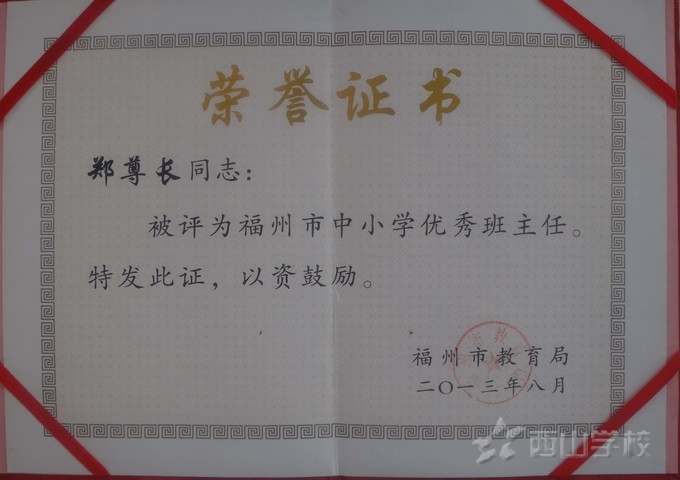 荣誉证书
郑尊长同志：
被评为福州市中小学优秀班主任。
特发此证，以资鼓励。
福州市教育局
二〇一三年八月
西山学校